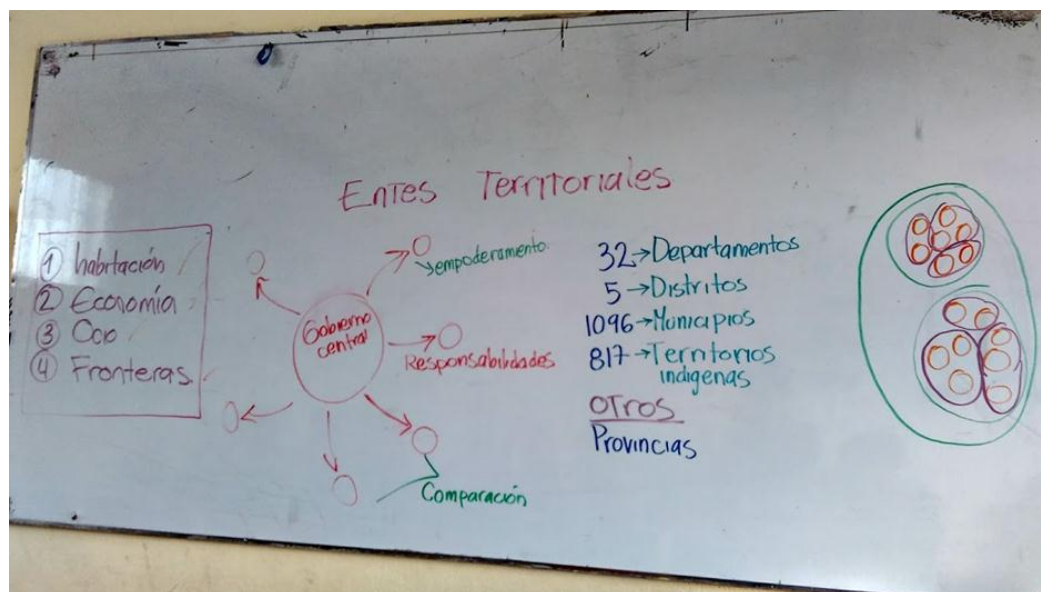 Entes Territoriales
① habitación
② Economía
③ Ocio
④ Fronteras
Gobierno
central
empoderamento.
Responsabilidades
Comparación
32→Departamentos
5→Distritos
1096→Municipios
817→Territorios
indigenas
OTROS
Provincias